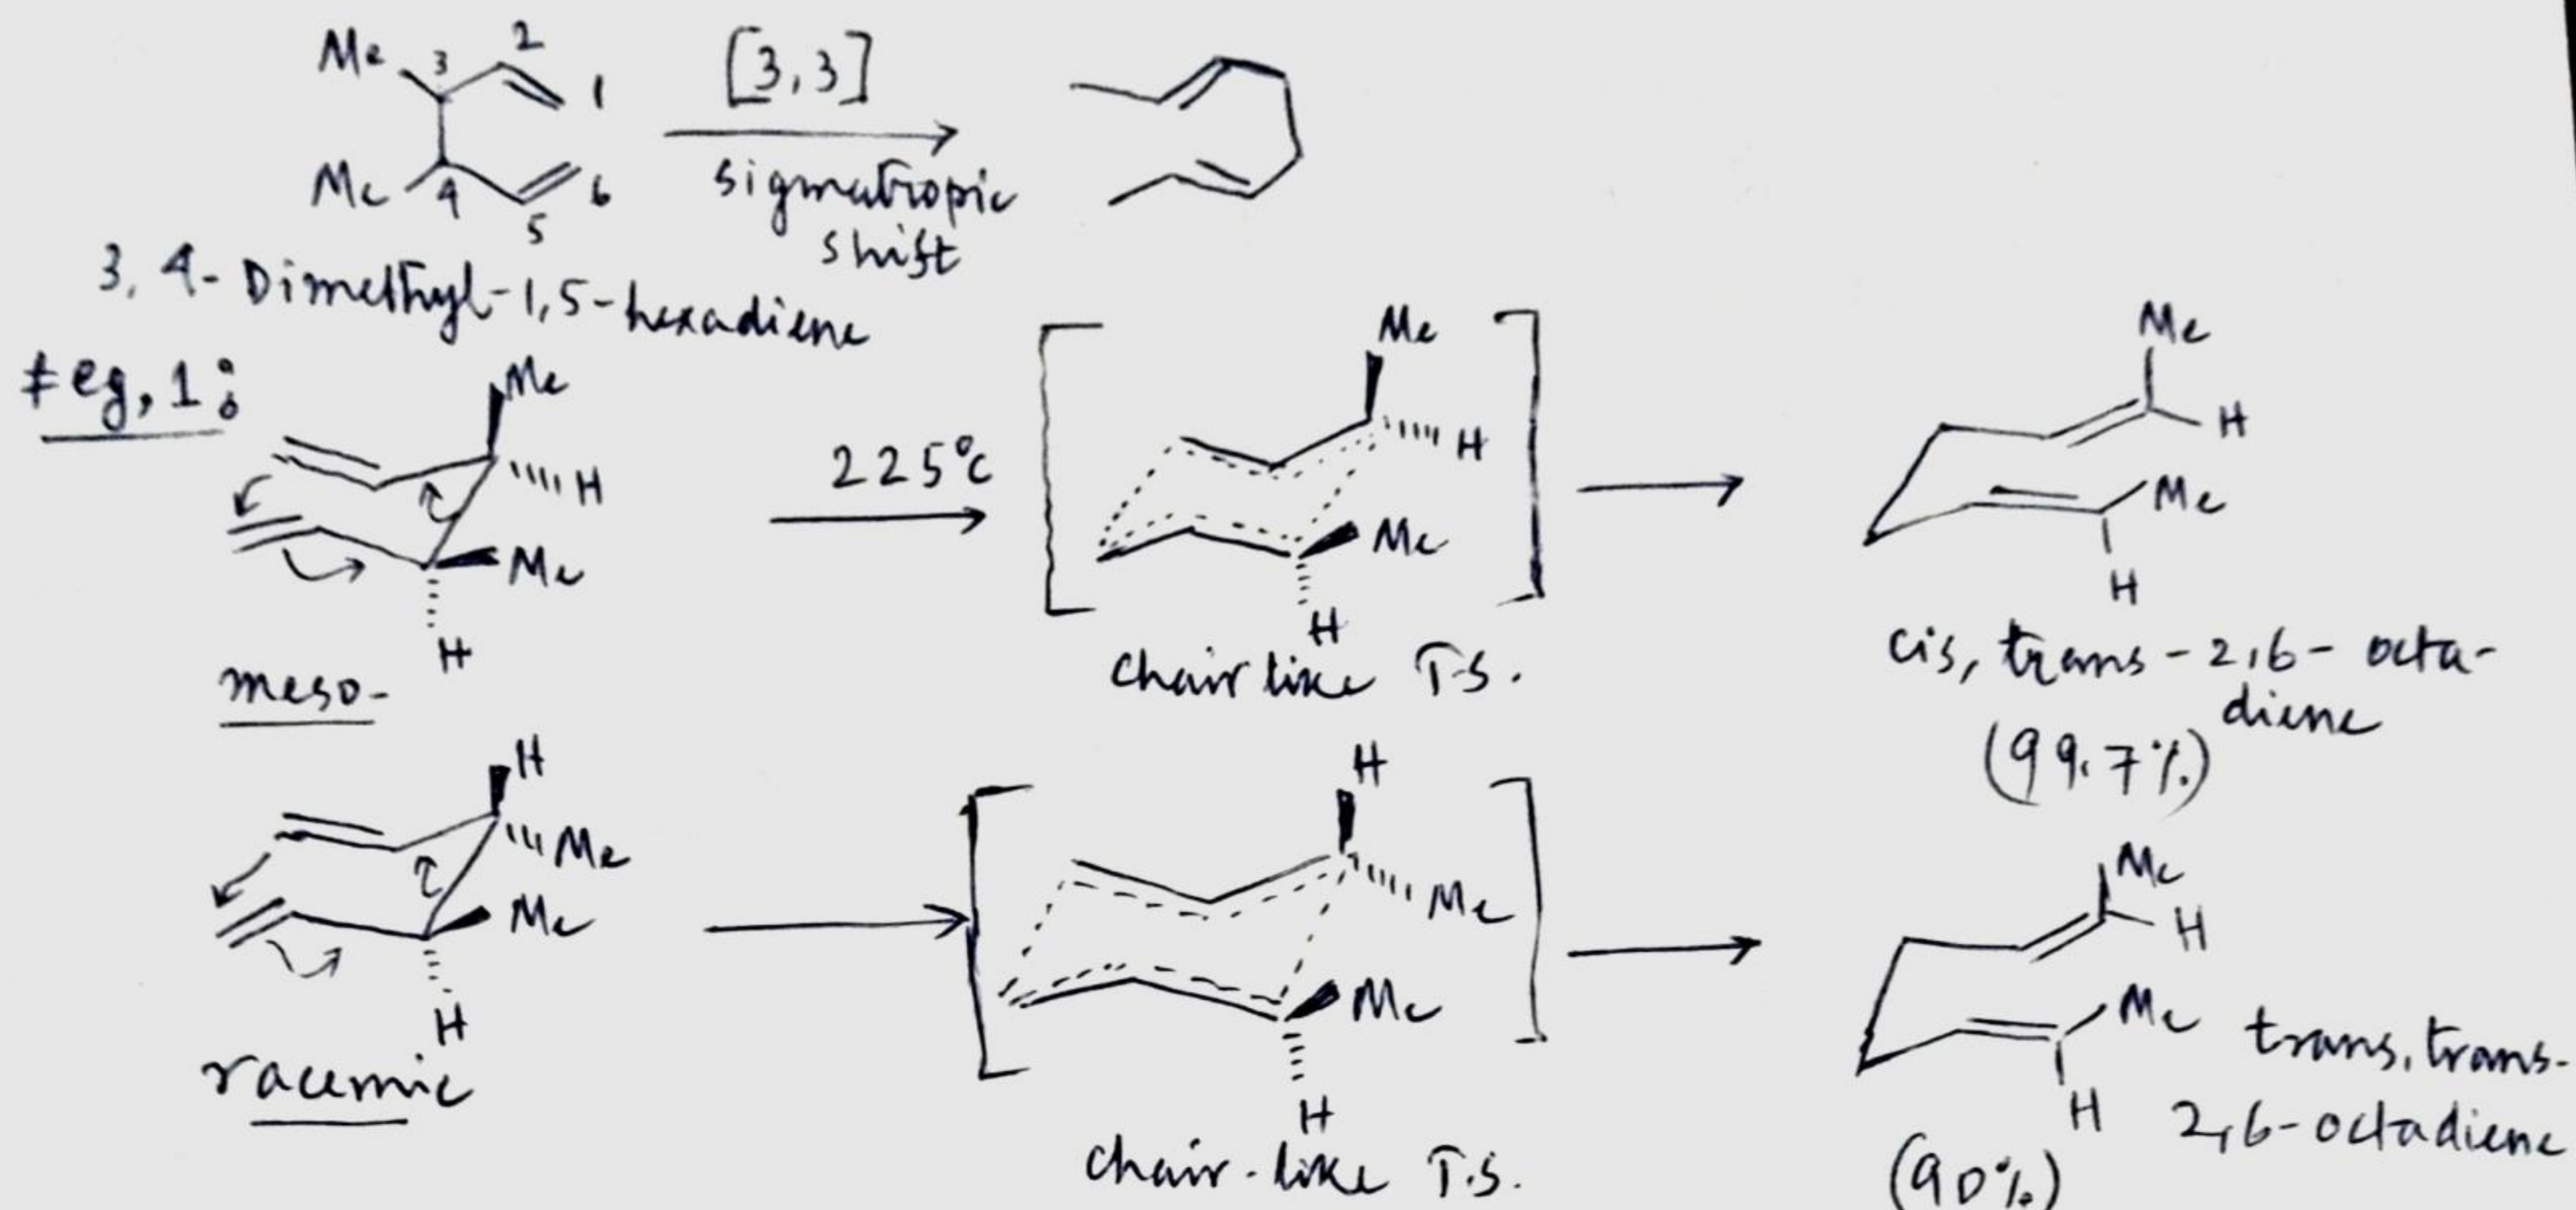 Me 3 2 1
[3,3]
Me 4 5 6
sigmatropic
shift
3,4-Dimethyl-1,5-hexadiene
# eg, 1:
Me
H
Me
H
meso-
225°C
Me
H
Me
H
chair like T.S.
Me
H
Me
H
cis, trans-2,6-octa-
diene
(99.7%)
H
Me
Me
H
racemic
H
Me
Me
H
chair-like T.S.
Me
H
Me
H
trans, trans-
2,6-octadiene
(90%)